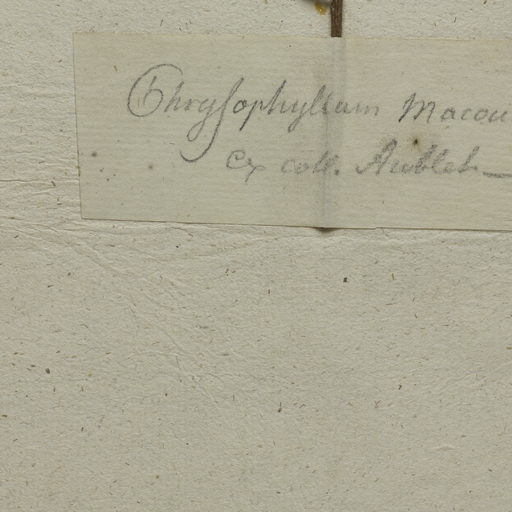 Chrysophyllum Macou
Ex coll. Aublet